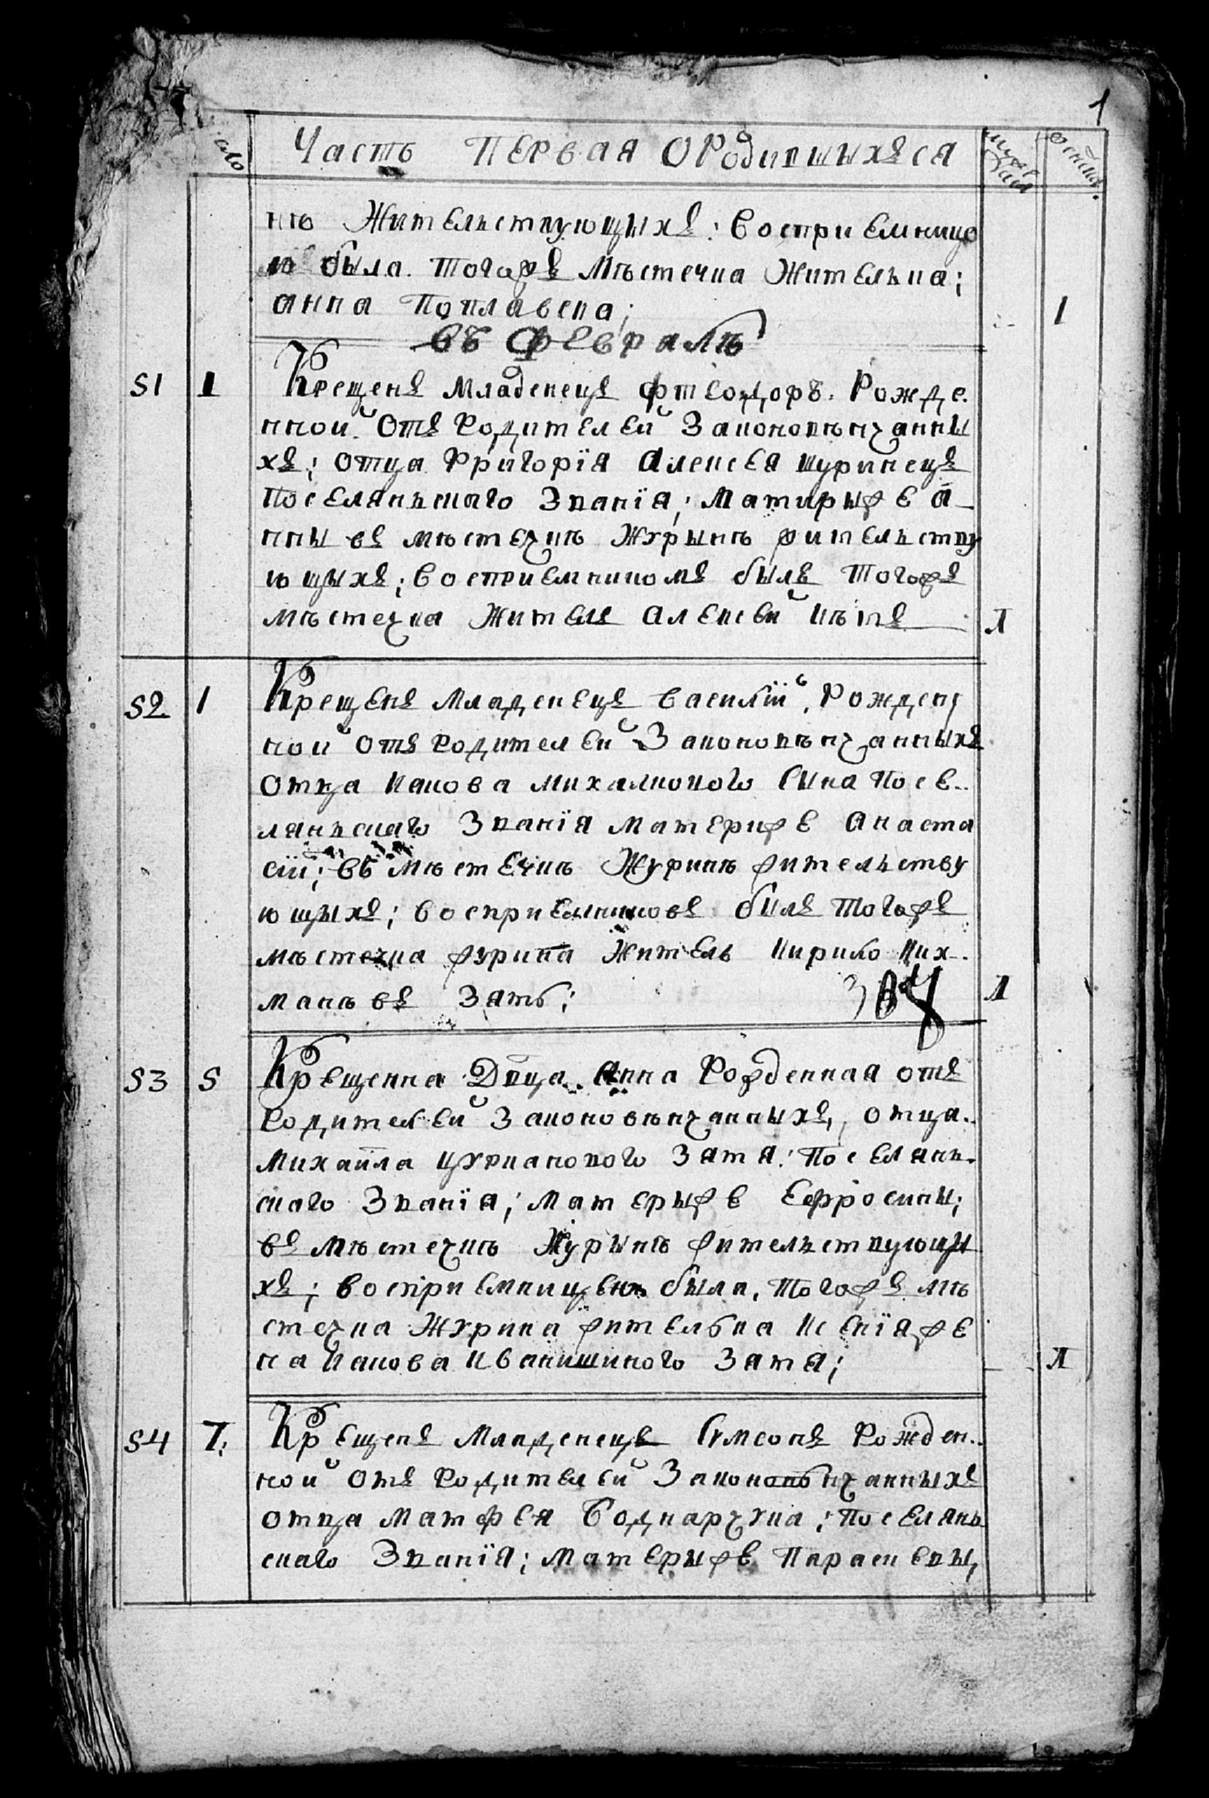 1
Часть первая О Родившыхся
число
мужеска
женска
нѣ Жительствующыхъ: Воспрiемницо
ю была тогожъ мѣстечка Жителька;
анна Поплавска;
1
въ февралѣ
51 1 Крещенъ младенецъ фтеодоръ. Рожде.
нной отъ Родителей Законовѣнчанны
хъ; отца Григорїя алексѣя
Поселянъскаго Званїя; Матирыже а-
нны въ мѣстечкѣ Журынѣ жителъству
ющыхъ; Воспрiемникомъ былъ Тогожъ
мѣстечка Жителъ алексей
1
52 1 Крещенъ младенецъ василїй, Рожден
ной отъ Родителей Законовѣнчанныхъ
отца Иакова михалкового сына Посе-
лянъскаго Званїя материже анаста
сїи; въ мѣстечкѣ Журинѣ жительству
ющыхъ; воспрiемникомъ былъ тогожъ
мѣстечка журина Житель Кирило
манъвъ Зять;
1
53 5 Крещенна Двца Анна Рожденная отъ
Родителей Законовѣнчанныхъ, отца
михайла цурканового Зятя: Поселянъ-
скаго Званїя; матерыже Еѵфросины;
въ мѣстечкѣ Журынѣ жителъствующы
хъ; воспрiемницею была, тогожъ мѣ
стечка Журина жителька Ксенїяже
на Иакова Зятя;
1
54 7. Крещенъ младенецъ Сѵмеонъ Рожден-
ной отъ Родителей Законовѣнчанныхъ
отца матфея Боднарчука; Поселянъ
скаго Званїя; матерыже Параскевы,